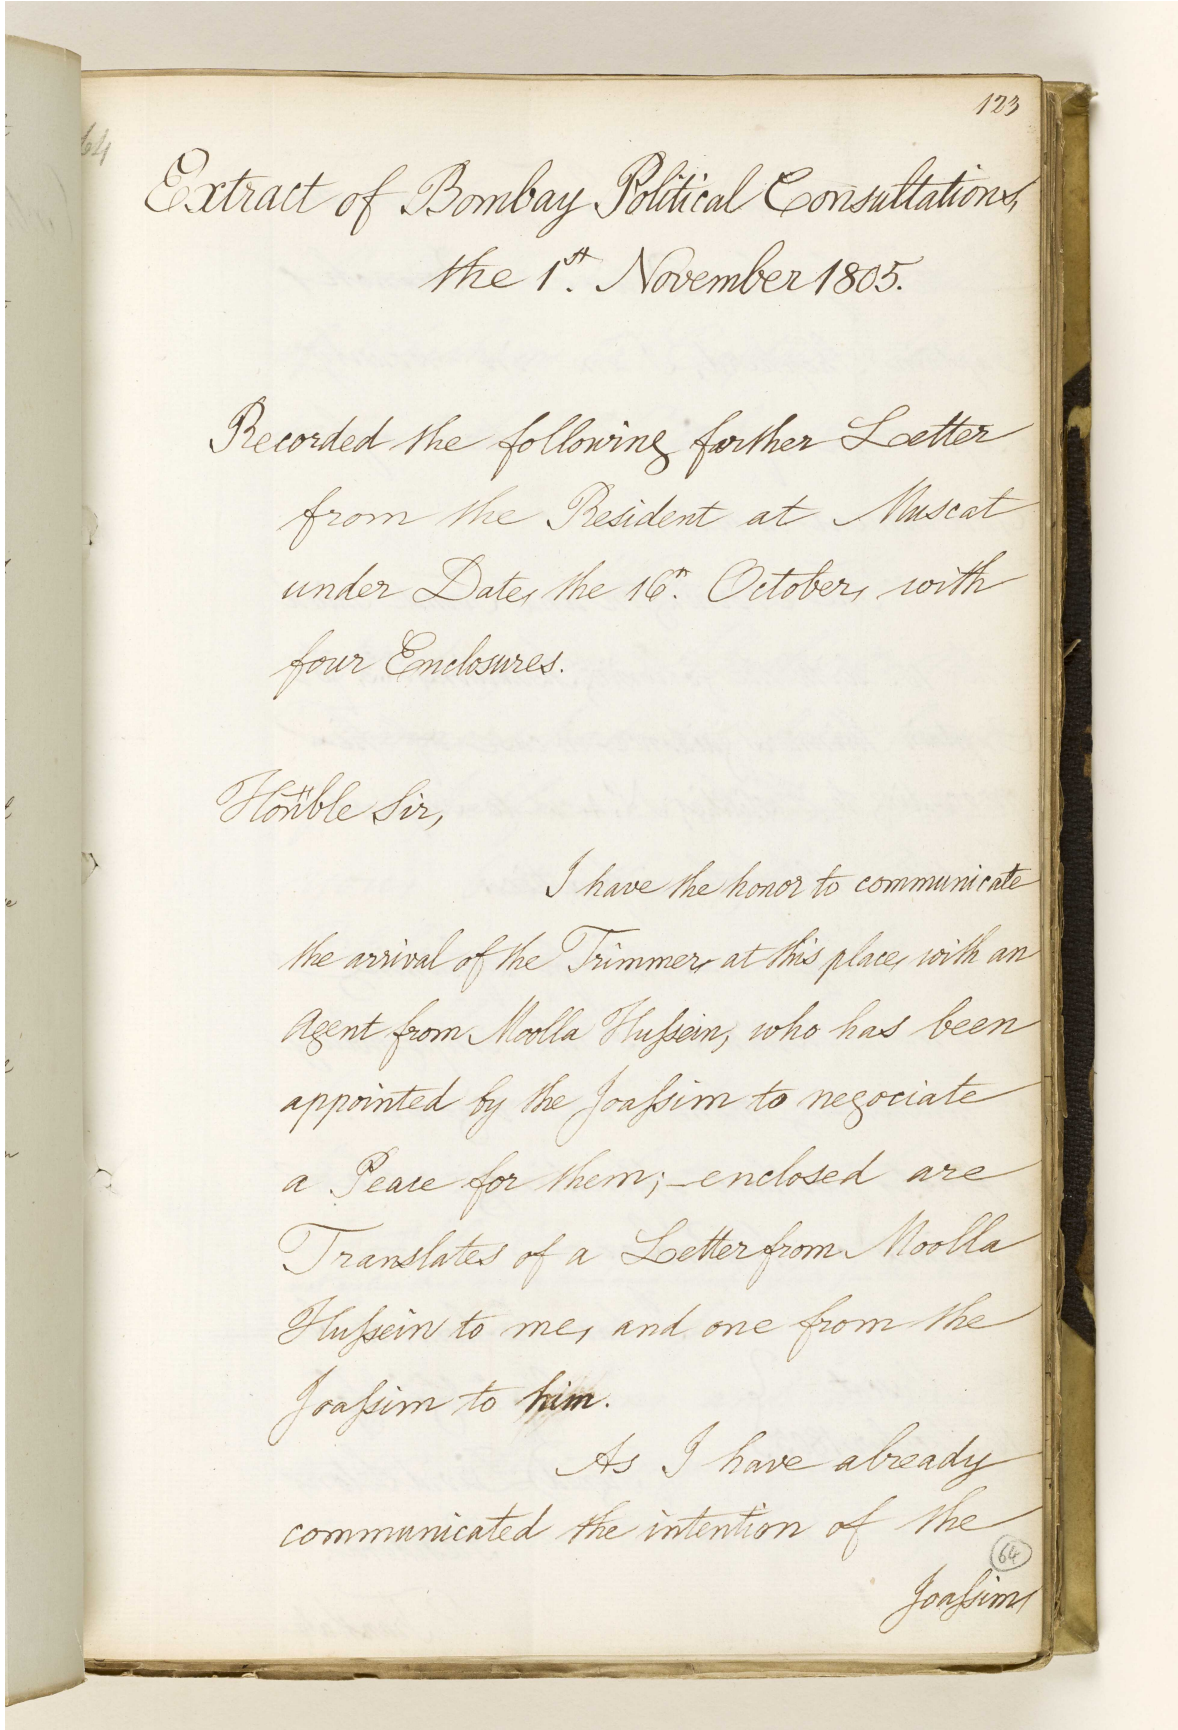 123
64
Extract of Bombay Political Consultations,
the 1st. November 1805.
Recorded the following further Letter
from the Resident at Muscat
under Date, the 16th. October, with
four Enclosures.
Hon'ble Sir,
I have the honor to communicate
the arrival of the Trimmer, at this place, with an
Agent from Moolla Hussein, who has been
appointed by the Joassim to negociate
a Peace for them; – enclosed are
Translates of a Letter from Moolla
Hussein to me, and one from the
Joassim to him.
As I have already
communicated the intention of the
64
Joassim,